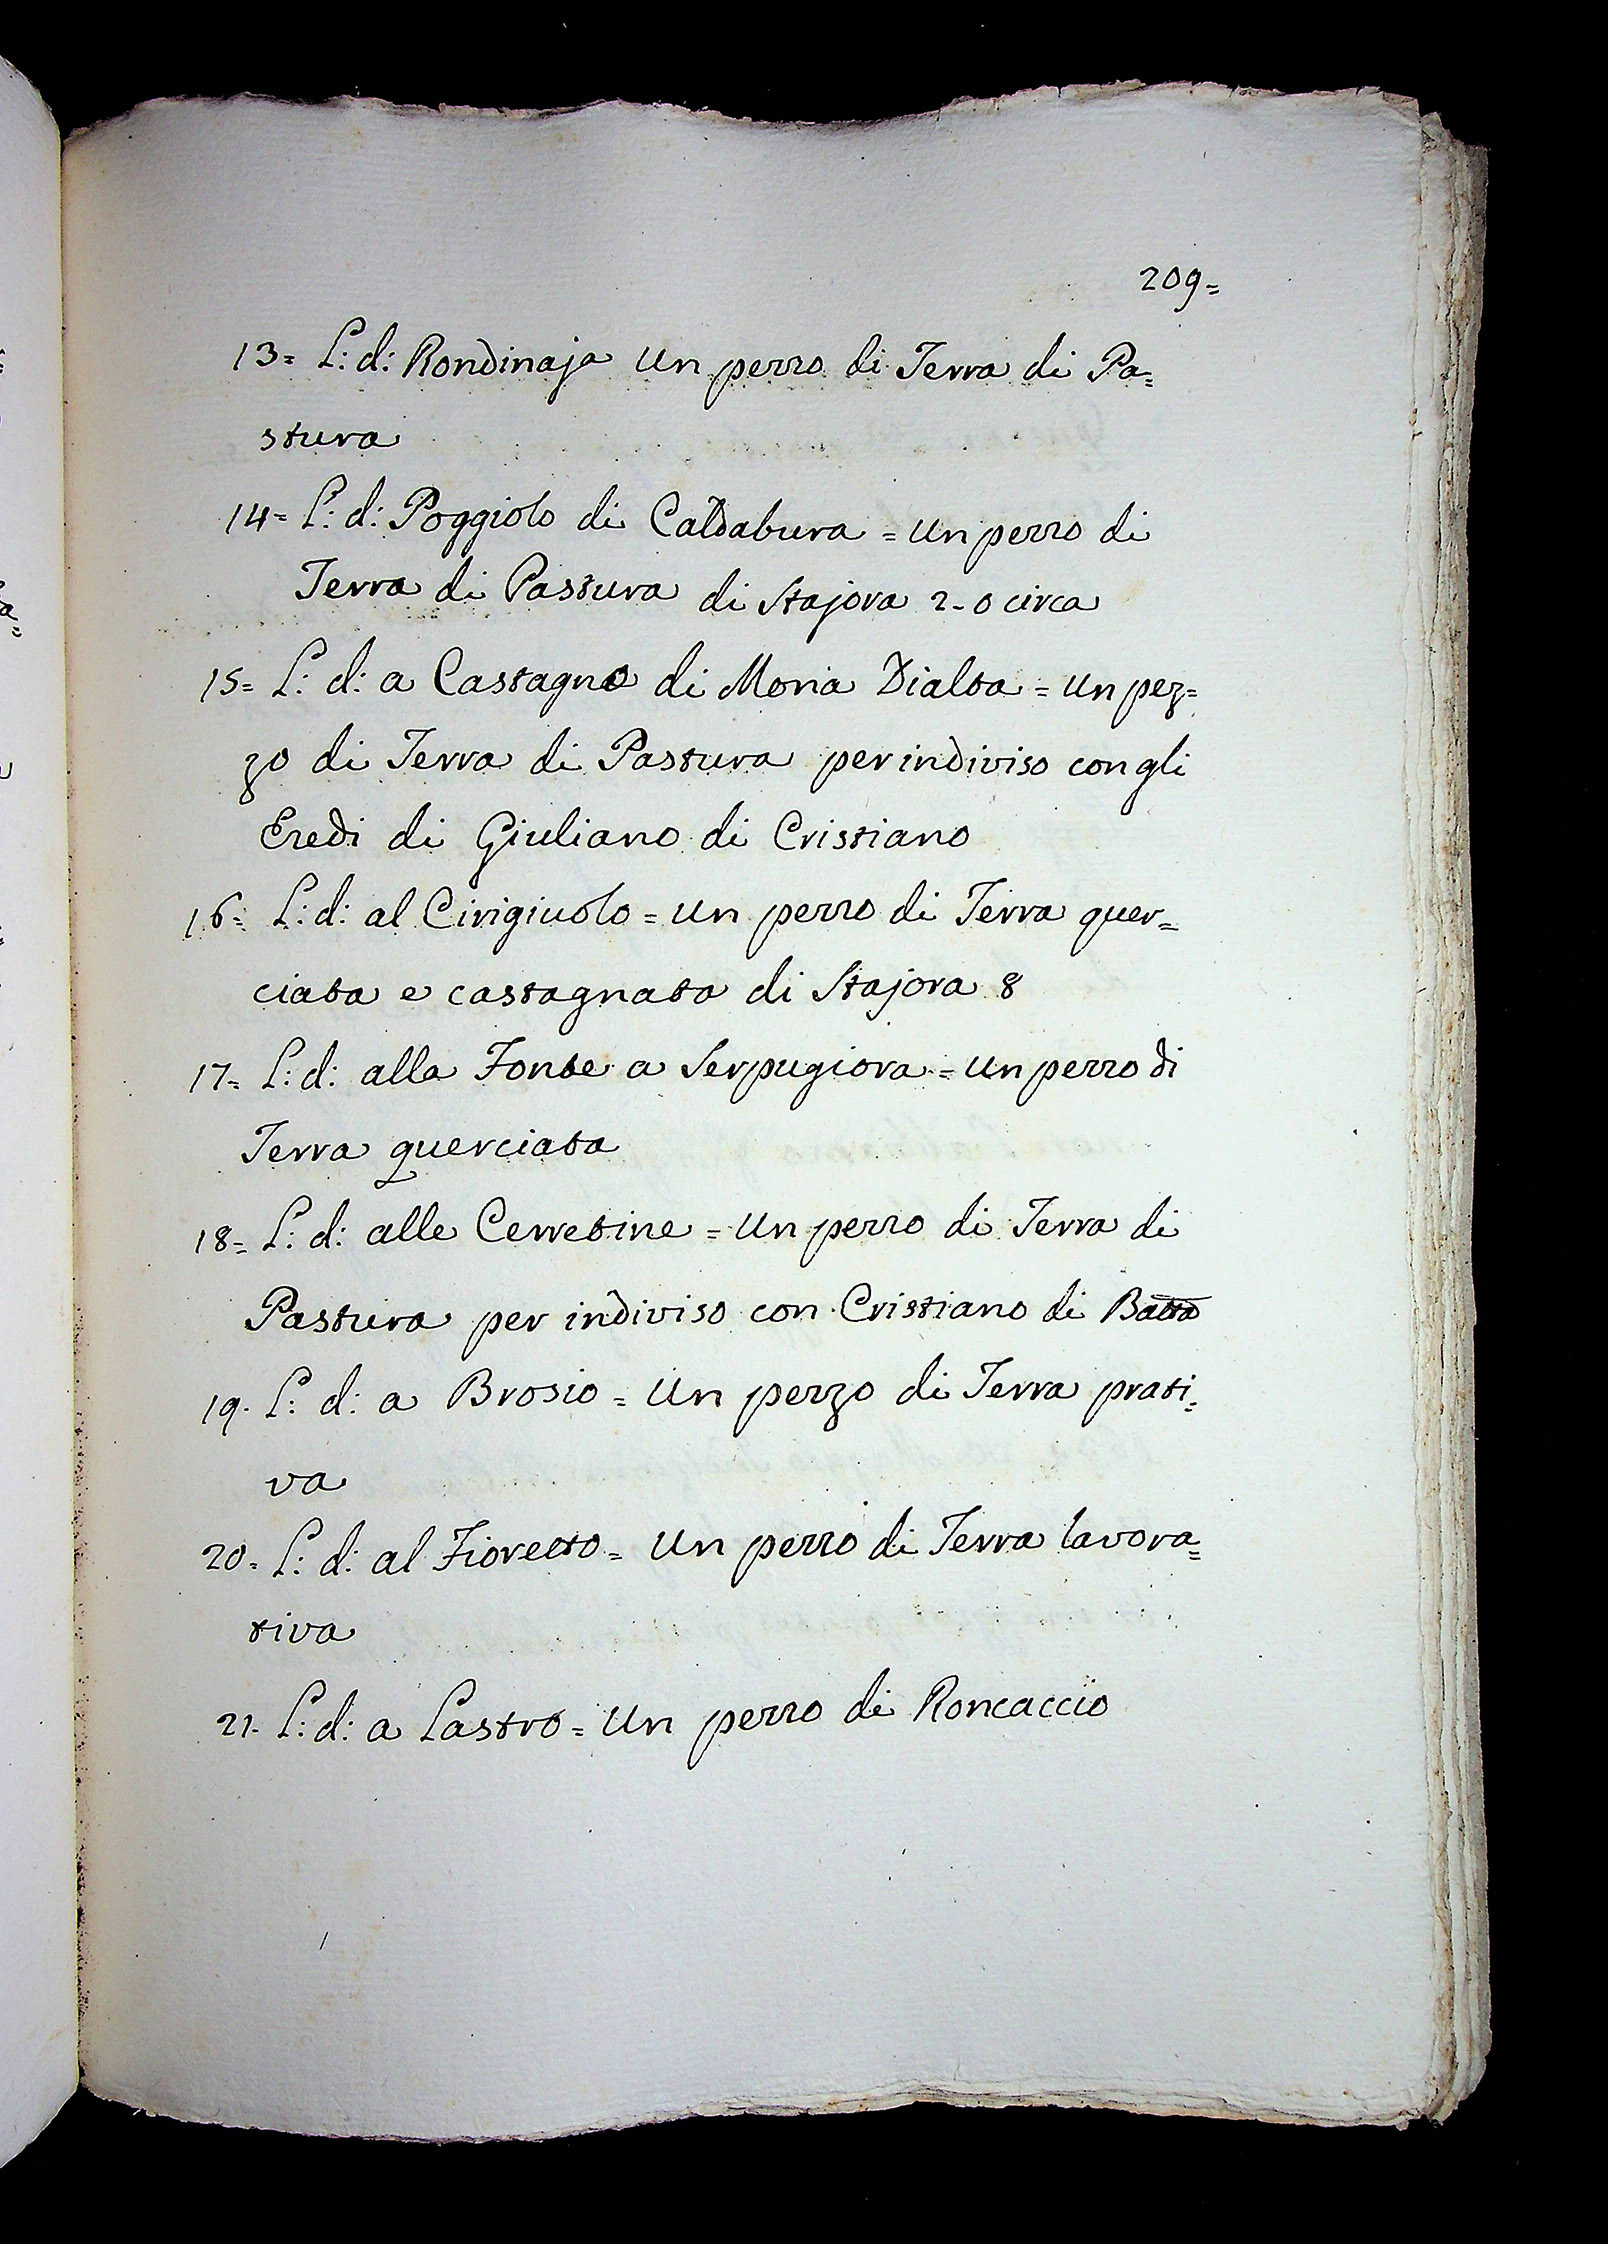 209=
13= L: d: Rondinaja Un pezzo di Terra di Pa=
stura
14= L: d: Poggiolo di Caldabura = Un pezzo di
Terra di Pastura di Stajora 2-0 circa
15= L: d: a Castagno di Mona Dialta = Un pez=
zo di Terra di Pastura per indiviso con gli
Eredi di Giuliano di Cristiano
16= L: d: al Cirigiuolo = Un pezzo di Terra quer=
ciata e castagnata di Stajora 8
17= L: d: alla Fonte a Serpugiora = Un pezzo di
Terra querciata
18= L: d: alle Cerretine = Un pezzo di Terra di
Pastura per indiviso con Cristiano di Batta
19. L: d: a Brosio = Un pezzo di Terra prati=
va
20= L: d: al Fioretto = Un pezzo di Terra lavora=
tiva
21- L: d: a Lastro = Un pezzo di Roncaccio